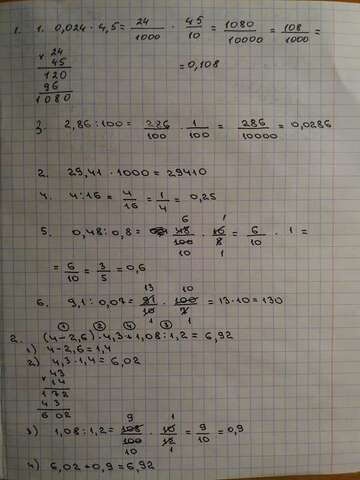 1. 1. 0,024 · 4,5 = 24/1000 · 45/10 = 1080/10000 = 108/1000 =
× 24
45
= 0,108
120
96
1080
3. 2,86 : 100 = 286/100 · 1/100 = 286/10000 = 0,0286
2. 29,41 · 1000 = 29410
4. 4 : 16 = 4/16 = 1/4 = 0,25
6 1
5. 0,48 : 0,8 = 48/100 · 10/8 = 6/10 · 1 =
10 1
= 6/10 = 3/5 = 0,6
13 10
6. 9,1 : 0,07 = 91/10 · 100/7 = 13 · 10 = 130
1 1
① ② ④ ③
2. (4 - 2,6) · 4,3 + 1,08 : 1,2 = 6,92
1) 4 - 2,6 = 1,4
2) 4,3 · 1,4 = 6,02
× 43
14
172
43
6 02
9 1
3) 1,08 : 1,2 = 108/100 · 10/12 = 9/10 = 0,9
10 1
4) 6,02 + 0,9 = 6,92